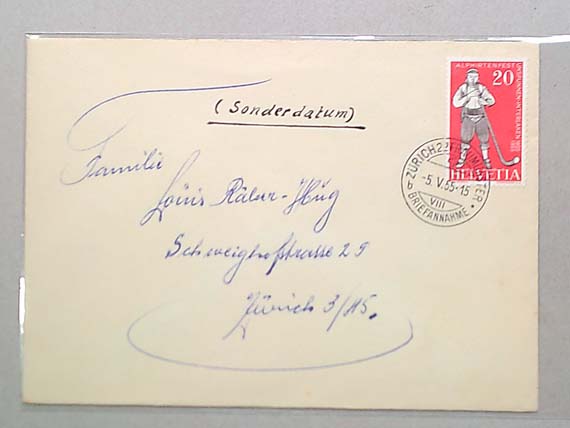 (Sonderdatum)
ALPHIRTENFEST
UNSPUNNEN INTERLAKEN
20
HELVETIA
ZÜRICH 22 FRAUMÜNSTER
-5.V.55-15
b VIII
BRIEFANNAHME
Familie
Louis Rätar-Hüg
Schweighofstrasse 29
Zürich 3/45.